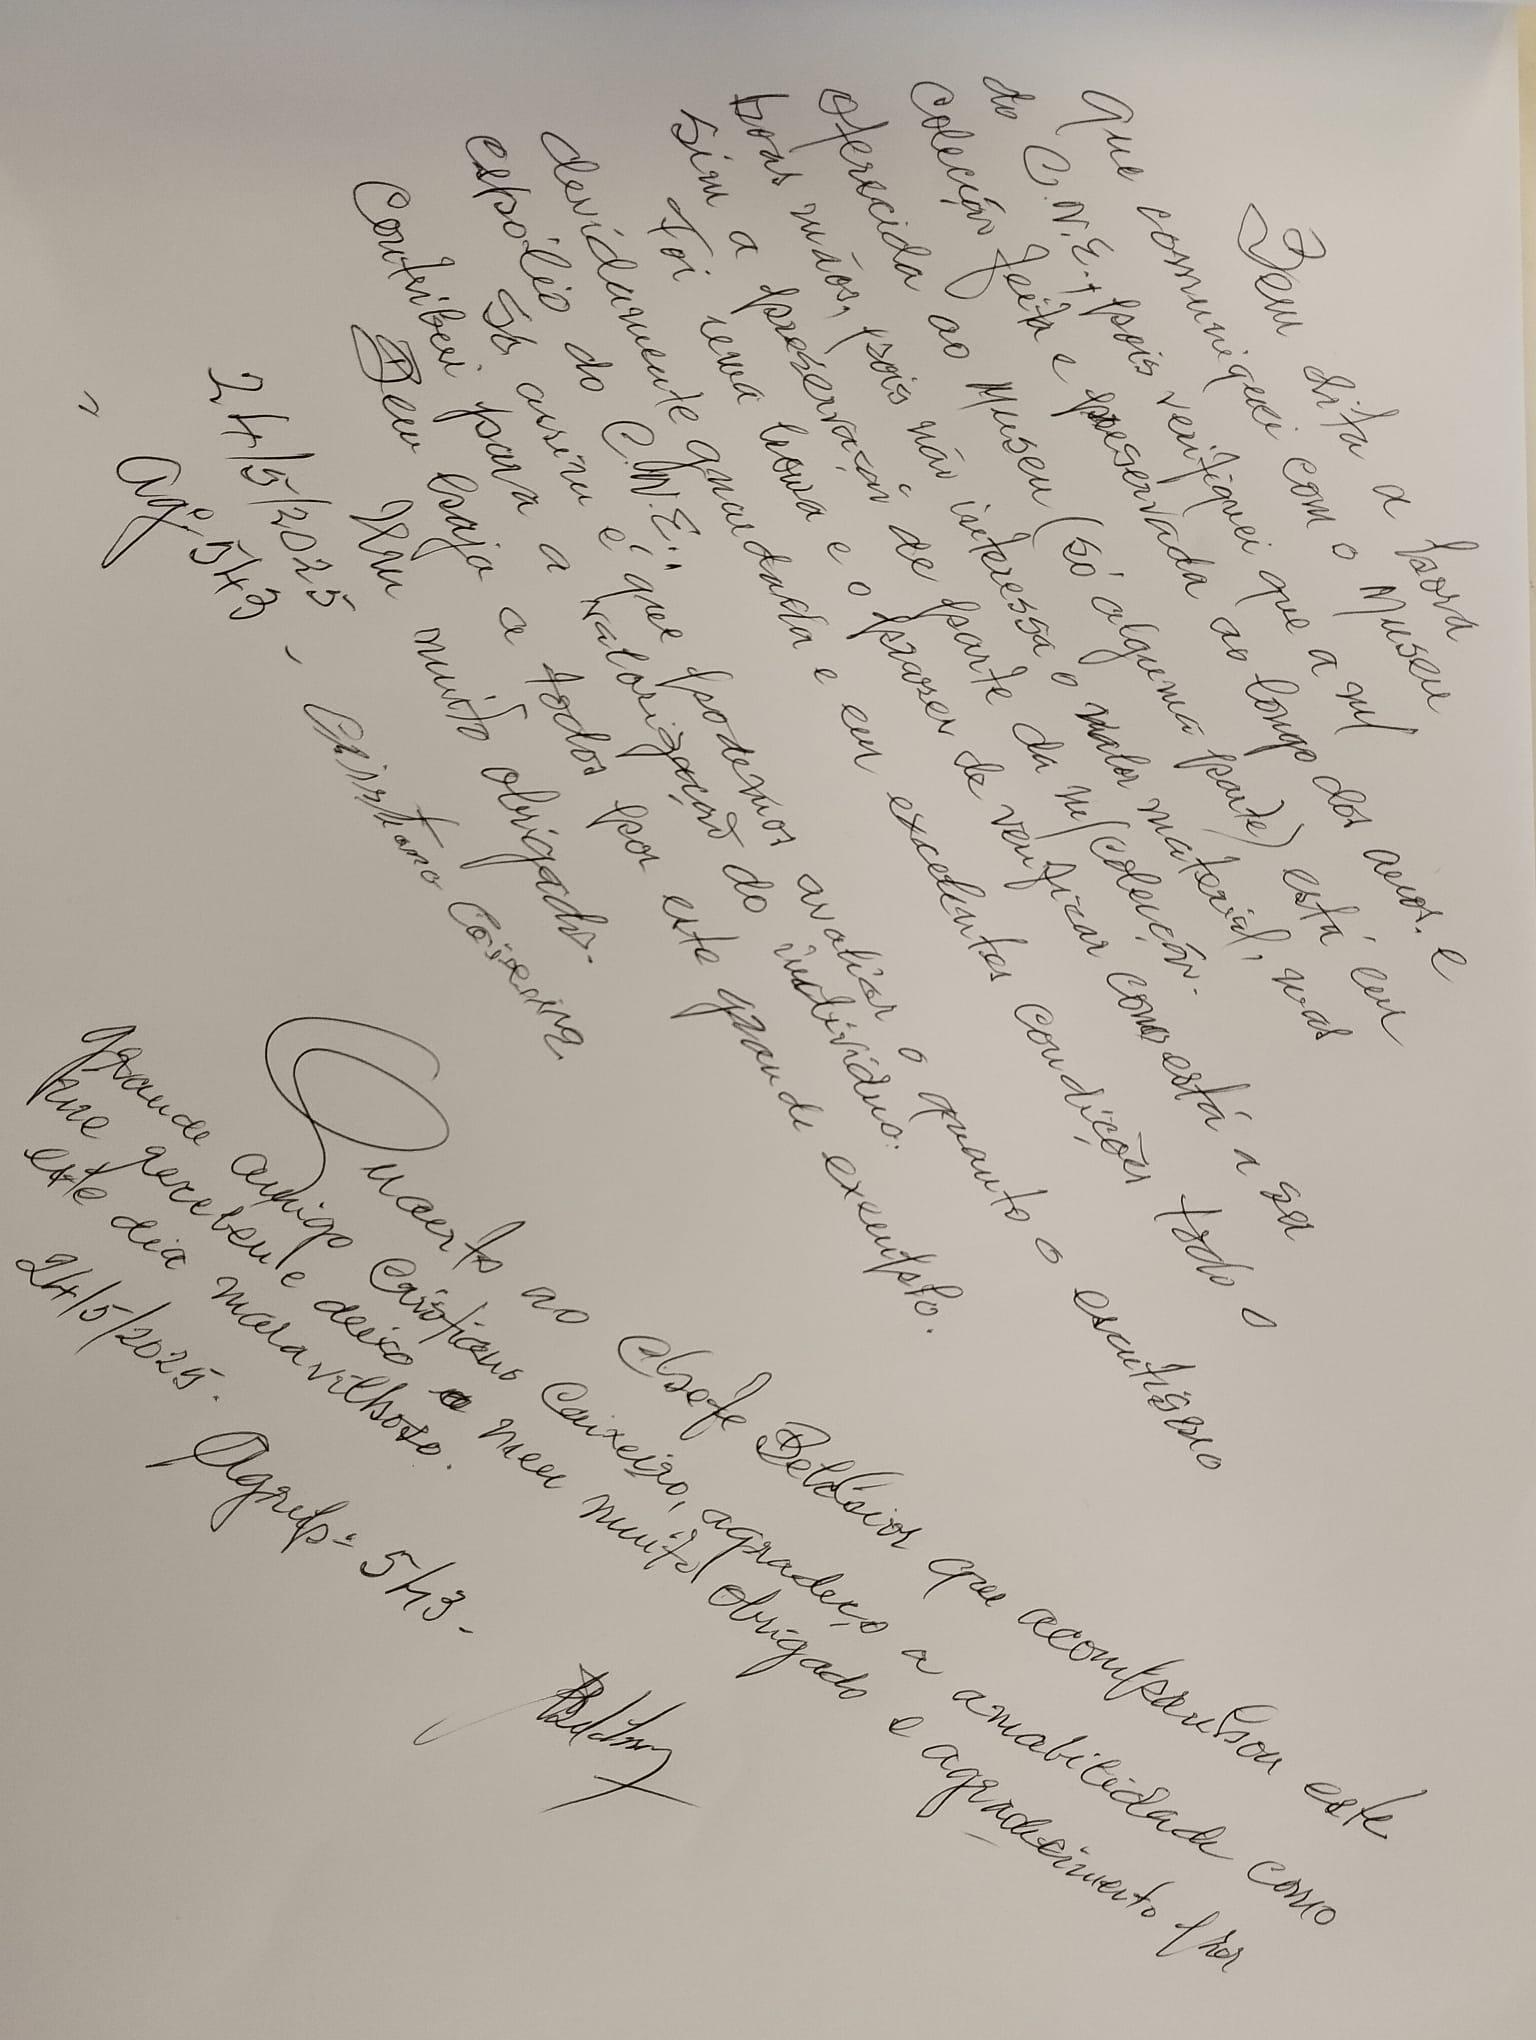 Bem dita a hora
que comuniquei com o Museu
do C.N.E., pois verifiquei que a m/
coleção feita e preservada ao longo dos anos. e
oferecida ao Museu (só alguma parte) está em
boas mãos, pois não interessa o valor material, mas
sim a preservação de parte da m/coleção.
Foi uma honra e o prazer de verificar como está a ser
devidamente guardada e em excelentes condições todo o
espólio do C.N.E."
Só assim é que podemos avaliar o quanto o escutismo
contribui para a valorização do indivíduo.
Bem haja a todos por este grande exemplo.
Um muito obrigado.
24/5/2025
Agº 543 - Cristiano Caixeiro
Quanto ao Chefe Belchior que acompanhou este
grande amigo Cristiano Caixeiro, agradeço a amabilidade como
me receberem e deixo o meu muito obrigado e agradecimento por
este dia maravilhoso.
24/5/2025. Agrupº 543 -